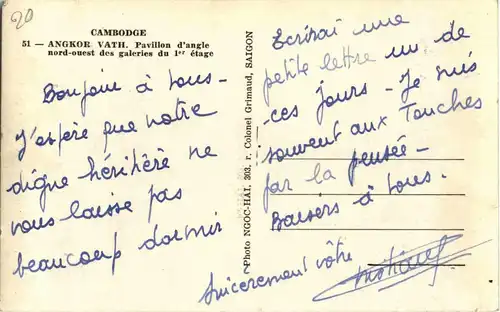 20
CAMBODGE
51 — ANGKOR VATH. Pavillon d'angle
nord-ouest des galeries du 1er étage
Bonjour à tous —
J'espère que notre
digne héritière ne
vous laisse pas
beaucoup dormir
Photo NGOC-HAI, 303, r. Colonel Grimaud, SAIGON
Ecrirai une
petite lettre un de
ces jours — Je suis
souvent aux Touches
par la pensée —
Baisers à tous.
Sincèrement vôtre